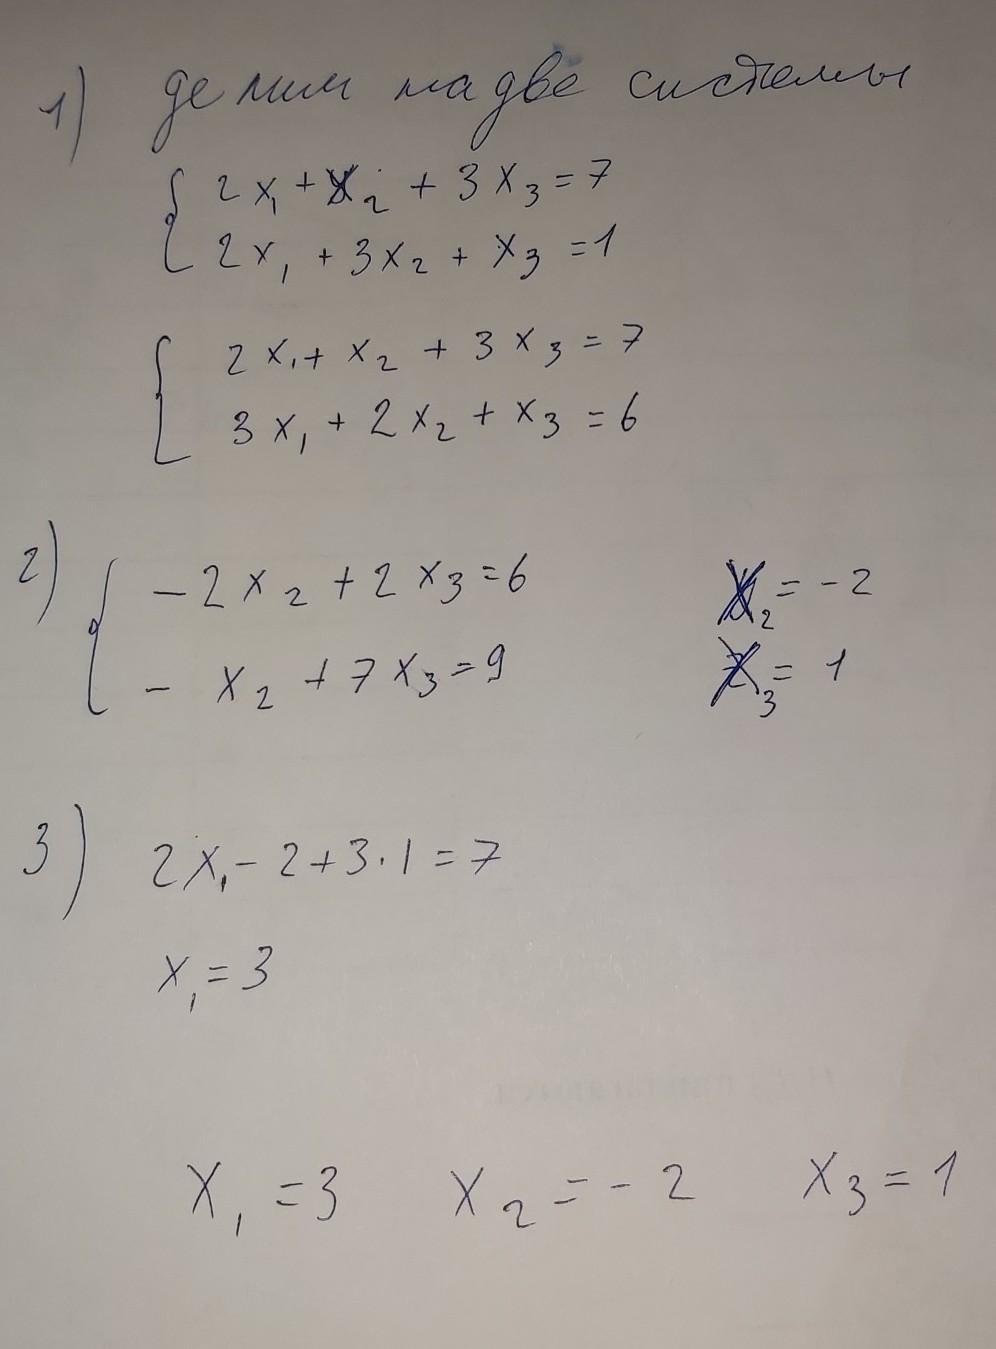 1) делим на две системы
2x₁ + x₂ + 3x₃ = 7
2x₁ + 3x₂ + x₃ = 1
2x₁ + x₂ + 3x₃ = 7
3x₁ + 2x₂ + x₃ = 6
2) -2x₂ + 2x₃ = 6 x₂ = -2
- x₂ + 7x₃ = 9 x₃ = 1
3) 2x₁ - 2 + 3·1 = 7
x₁ = 3
x₁ = 3 x₂ = -2 x₃ = 1